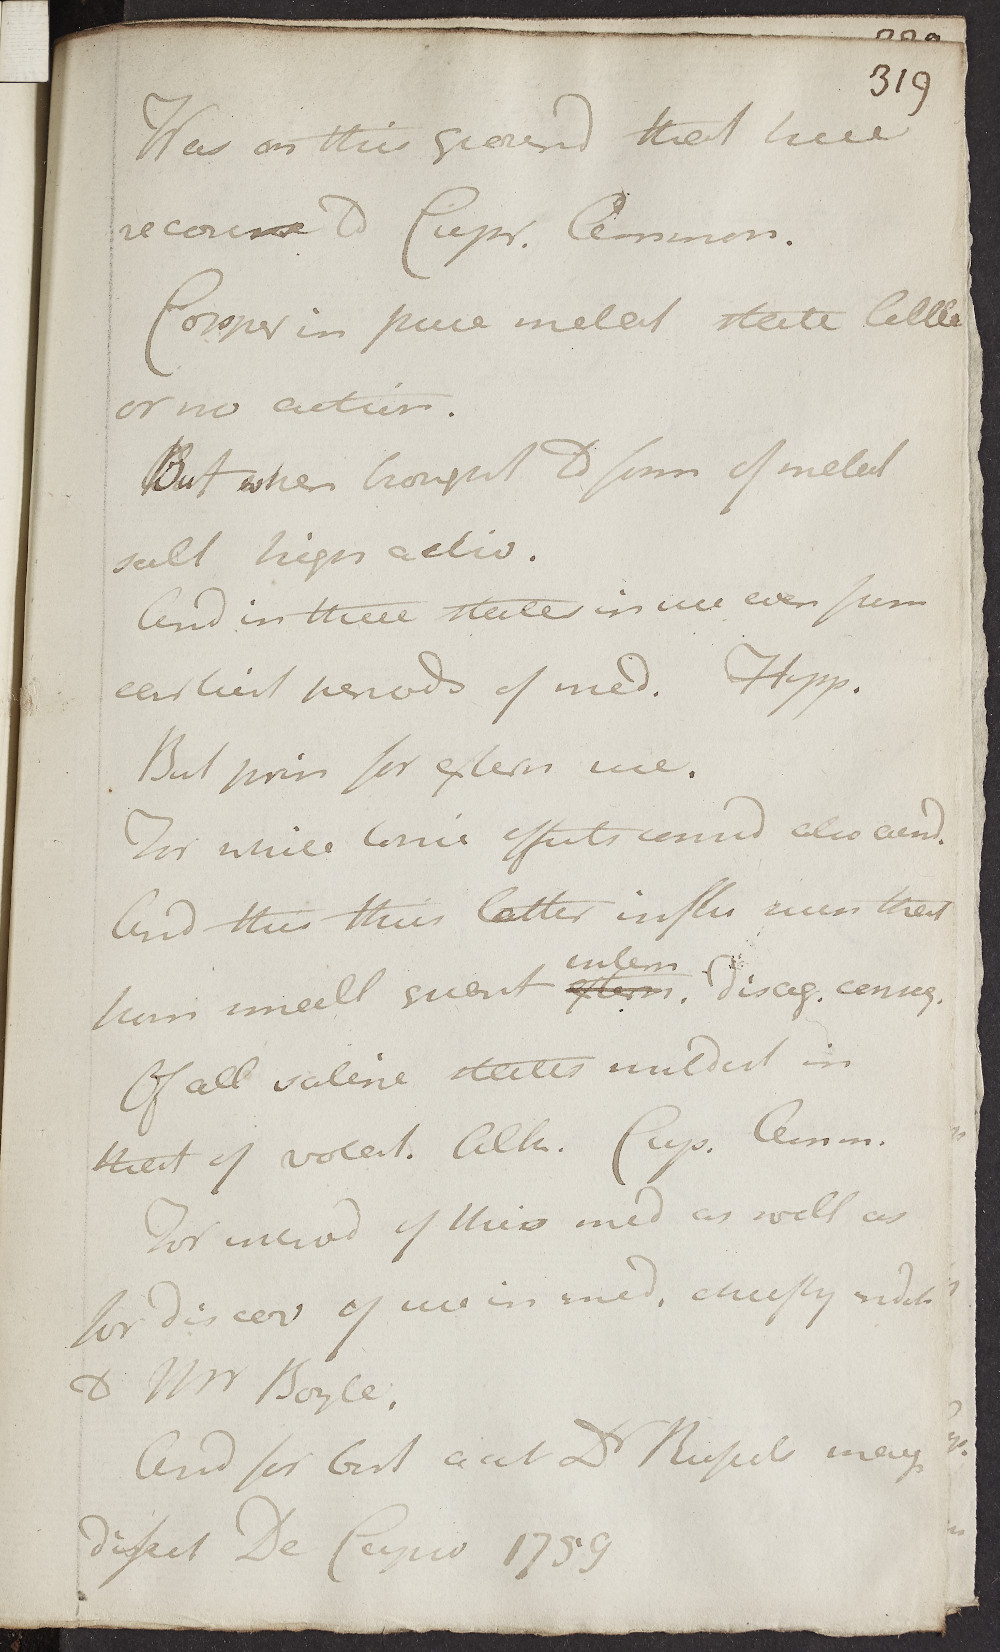 319
Was on this ground that have
recourse to Cupr. Ammon.
Copper in pure metal state little
or no action.
But when brought to form of metal
salt high activ.
And in these states in use even from
earliest periods of med. Hipp.
But prin for extern use.
For while tonic effects conud also
And this this latter influ
small quant intern extern. disag. conseq.
Of all saline states mildest in
that of volat. Alk. Cup. Amm.
For introd of this med as well as
for discov of use in med. chiefly indeb
to Mr Boyle.
And for best acct Dr Rusels inaug
dissert De Cupro 1759